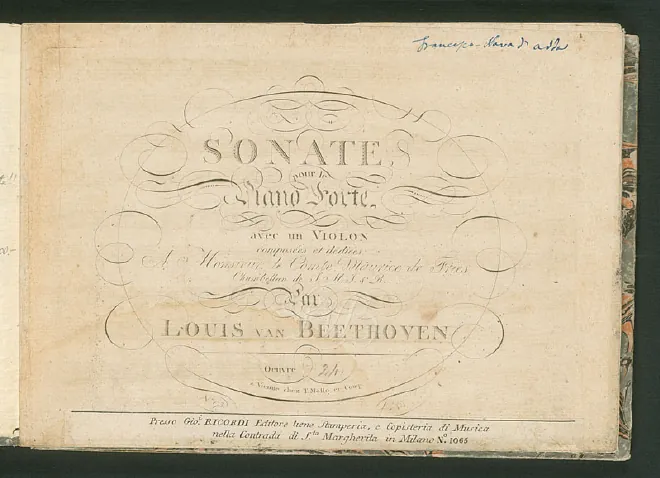 SONATE
pour le
Piano Forte
avec un VIOLON
composées et dediées
A Monsieur le Comte Maurice de Fries
Chambellan de S. M. I. & R.
Par
LOUIS VAN BEETHOVEN
Oeuvre 24
à Vienne chez T. Mollo et Comp.
Presso Gio. RICORDI Editore tiene Stamperia, e Copisteria di Musica
nella Contrada di Sta Margherita in Milano No. 1065